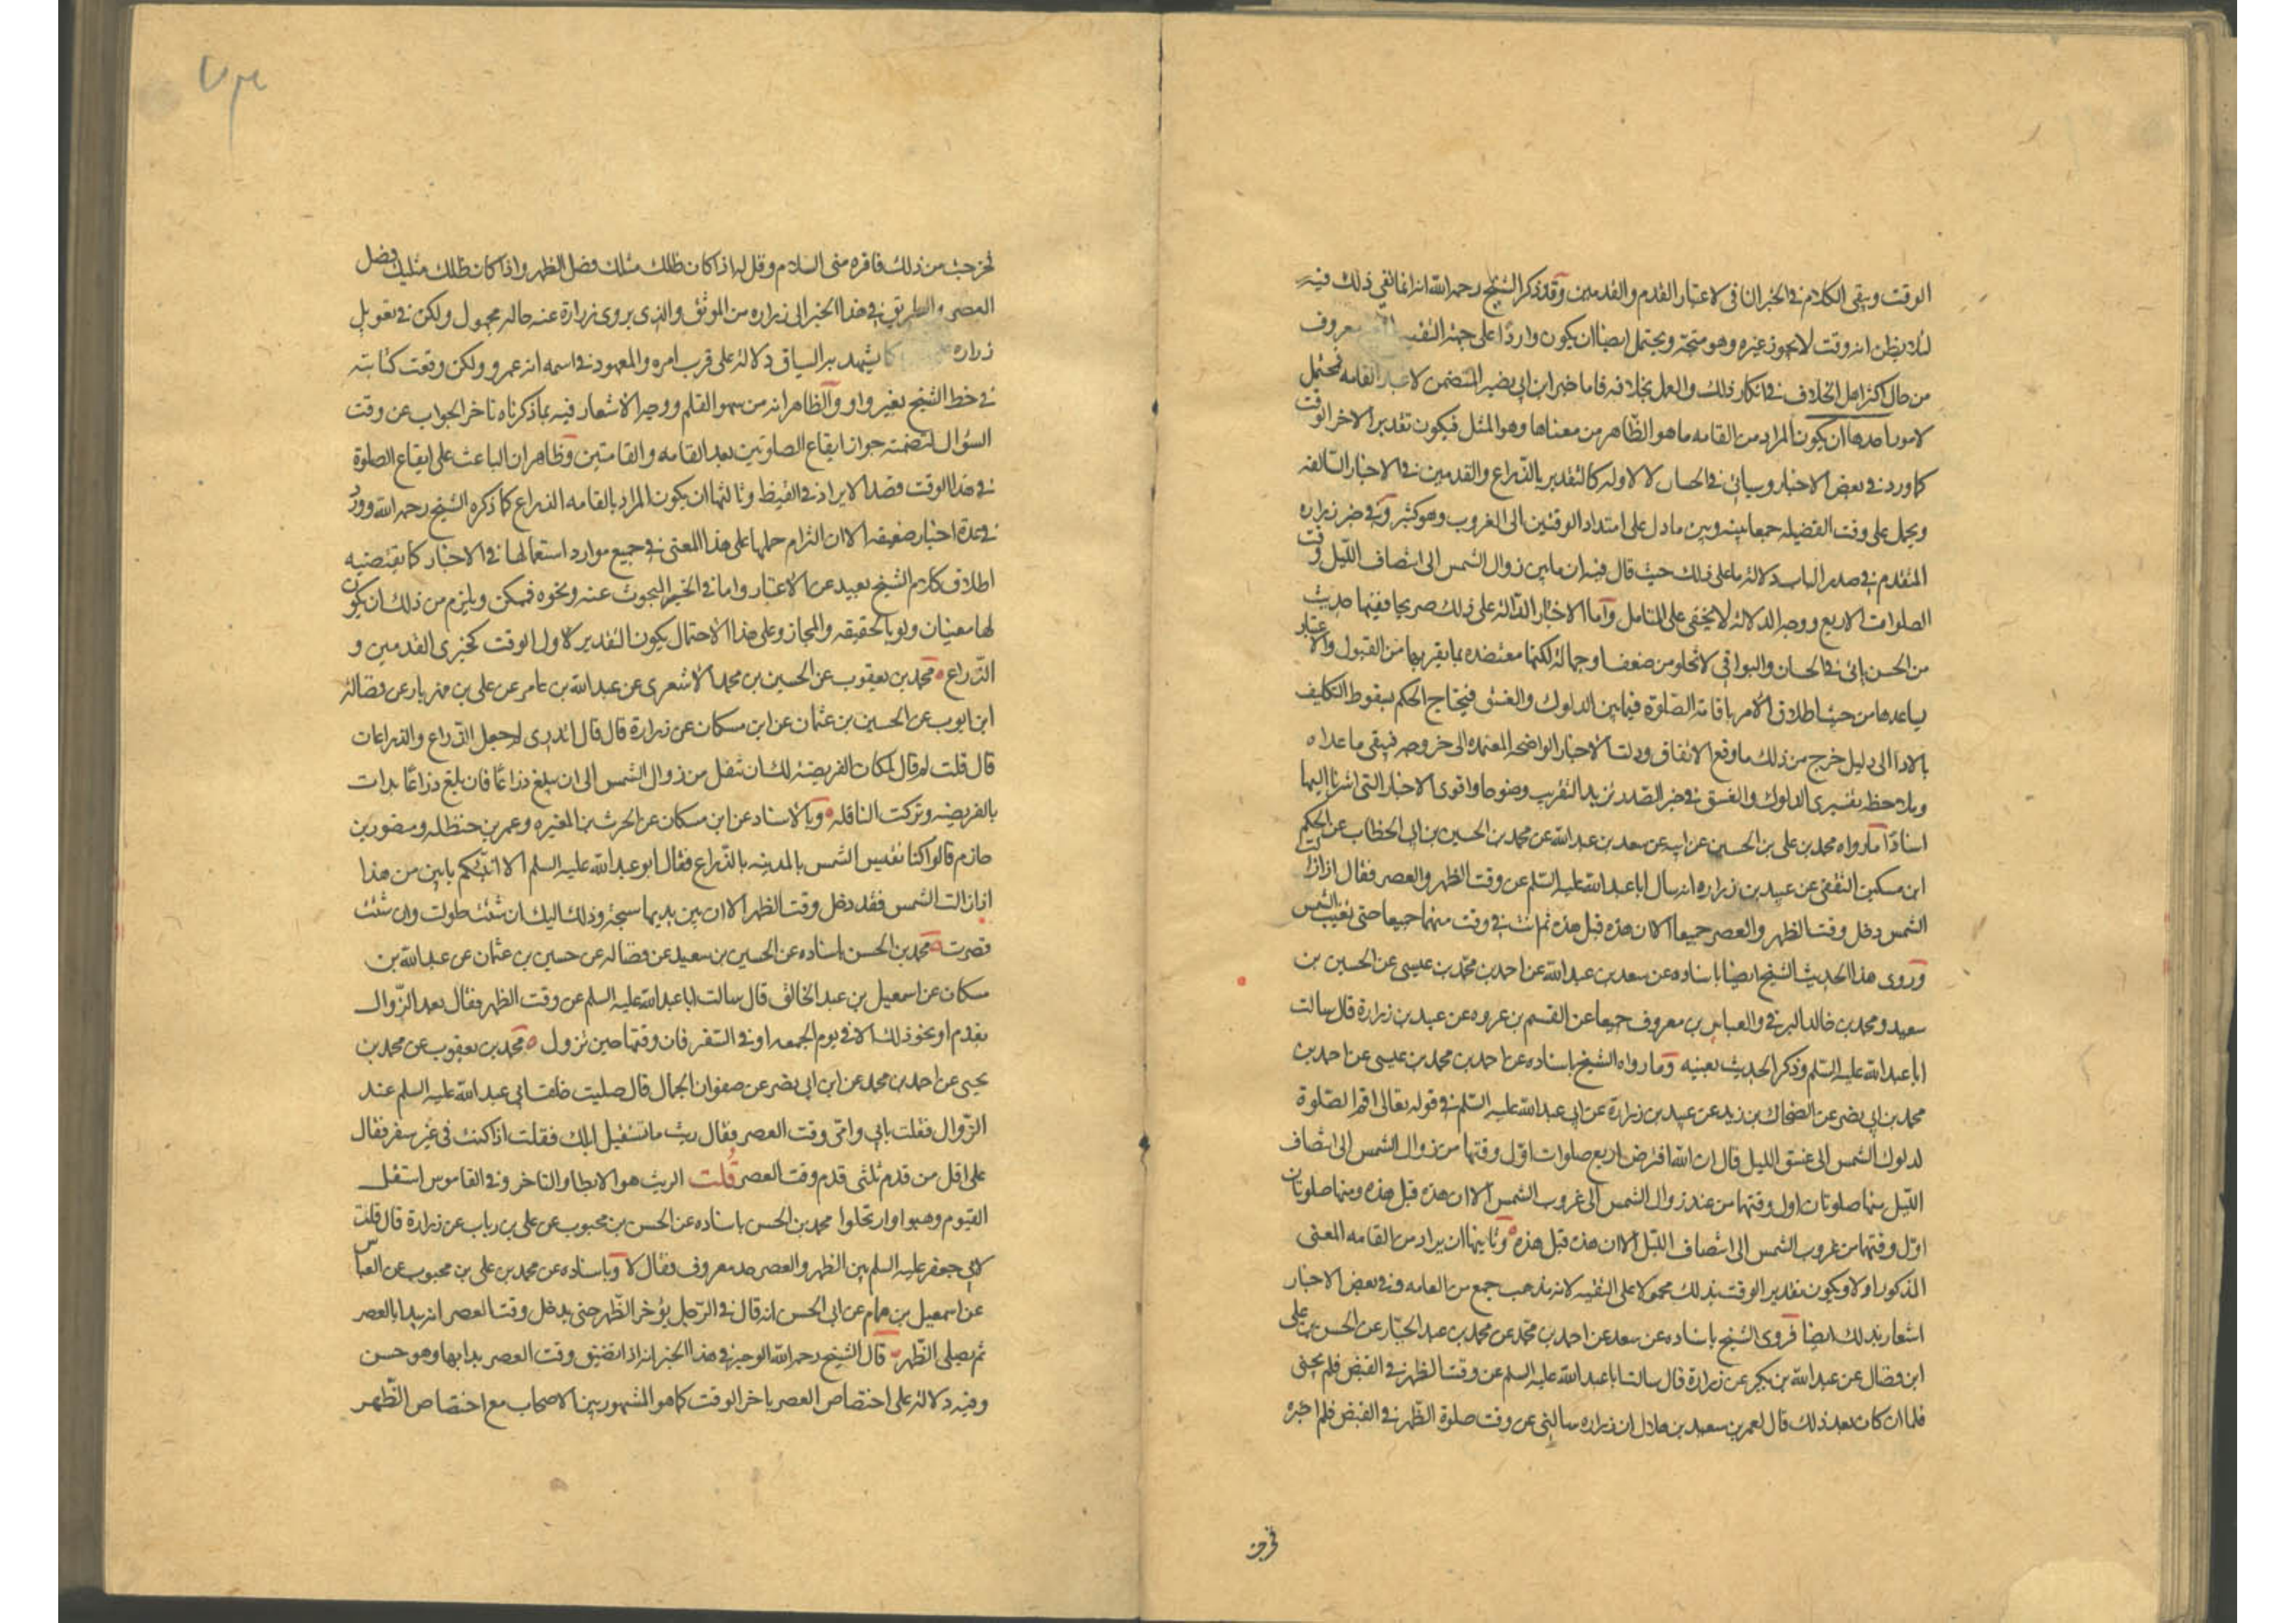 الوقت ويبقى الكلام في الخبر النافي لاعتبار القدم والقدمين وقد ذكر الشيخ رحمه الله انه انما نفي ذلك فيه
لئلا يظن انه وقت لا يجوز غيره وهو متجه ويحتمل ايضا ان يكون واردا على جهة التقيه معروف
من حال اكثر اهل الخلاف في انكار ذلك والعمل بخلافه فاما خبر ابن ابي نصير المتضمن لاعتبار القامه فمحتمل
لامور احدها ان يكون المراد من القامه ما هو الظاهر من معناها وهو المثل فيكون تقدير الاخر الوقت
كما ورد في بعض الاخبار وسياتي في الحسان لا لاوله كالتقدير بالذراع والقدمين في الاخبار السالفه
ويحمل على وقت الفضيله جمعا بينه وبين ما دل على امتداد الوقتين الى الغروب وهو كثير وفي خبر زراره
المتقدم في صدر الباب دلالة ما على ذلك حيث قال فيه ان ما بين زوال الشمس الى انتصاف الليل وقت
الصلوات الاربع ووجه الدلالة لا يخفى على المتامل واما الاخبار الدالة على ذلك صريحا ففيها حديث
من الحسن ياتي في الحسان والبواقي لا تخلو من ضعف او جهالة لكنها معتضده بما يقربها من القبول والاعتبار
يساعدها من حيث اطلاق الامر باقامة الصلوة فيما بين الدلوك والغسق فيحتاج الحكم بسقوط التكليف
بالادا الى دليل خرج من ذلك ما وقع الاتفاق ودلت الاخبار الواضحه المعتمده الى خروجه فيبقى ما عداه
وبملاحظه تفسيري الدلوك والغسق في خبر الصدر تزيد التقريب وضوحا واقوى الاخبار التي اشرنا اليها
اسنادا ما رواه محمد بن علي بن الحسين عن ابيه عن سعد بن عبد الله عن محمد بن الحسين بن ابي الخطاب عن الحكم
ابن مسكين الثقفي عن عبيد بن زراره انه سال ابا عبد الله عليه السلم عن وقت الظهر والعصر فقال اذا زالت
الشمس دخل وقت الظهر والعصر جميعا الا ان هذه قبل هذه ثم انت في وقت منهما جميعا حتى تغيب الشمس
وروى هذا الحديث الشيخ ايضا باسناده عن سعد بن عبد الله عن احمد بن محمد بن عيسى عن الحسين بن
سعيد ومحمد بن خالد البرقي والعباس بن معروف جميعا عن القسم بن عروه عن عبيد بن زرارة قال سالت
ابا عبد الله عليه السلم وذكر الحديث بعينه وما رواه الشيخ باسناده عن احمد بن محمد بن عيسى عن احمد بن
محمد بن ابي نصر عن الضحاك بن زيد عن عبيد بن زرارة عن ابي عبد الله عليه السلم في قوله تعالى اقم الصلوة
لدلوك الشمس الى غسق الليل قال ان الله افترض اربع صلوات اول وقتها من زوال الشمس الى انتصاف
الليل منها صلوتان اول وقتهما من عند زوال الشمس الى غروب الشمس الا ان هذه قبل هذه ومنها صلوتان
اول وقتهما من غروب الشمس الى انتصاف الليل الا ان هذه قبل هذه وثانيها ان يراد من القامه المعنى
المذكور اولا ويكون تقدير الوقت بذلك محمولا على التقيه لانه مذهب جمع من العامه وفي بعض الاخبار
اشعار بذلك ايضا فروى الشيخ باسناده عن سعد عن احمد بن محمد عن محمد بن عبد الجبار عن الحسن بن علي
ابن فضال عن عبد الله بن بكير عن زرارة قال سالت ابا عبد الله عليه السلم عن وقت الظهر في القيض فلم يجبني
فلما ان كان بعد ذلك قال لعمر بن سعيد بن هلال ان زراره سالني عن وقت صلوة الظهر في القيض فلم اخبره
فخرجت من ذلك فاقره مني السلام وقل له اذا كان ظلك مثلك فصل الظهر واذا كان ظلك مثليك فصل
العصر والطريق في هذا الخبر الى زراره من الموثق والذي يروي زرارة عنه حاله مجهول ولكن في تعويل
زراره كما يشهد به السياق دلالة على قرب امره والمعهود في اسمه انه عمرو ولكن وقعت كتابته
في خط الشيخ بغير واو والظاهر انه من سهو القلم ووجه الاشعار فيه بما ذكرناه تاخر الجواب عن وقت
السؤال لتضمنه جواز ايقاع الصلوتين بعد القامه والقامتين وظاهر ان الباعث على ايقاع الصلوة
في هذا الوقت قصد الايراد في القيظ وثالثها ان يكون المراد بالقامه الذراع كما ذكره الشيخ رحمه الله وورد
في عدة اخبار ضعيفه الا ان التزام حملها على هذا المعنى في جميع موارد استعمالها في الاخبار كما يقتضيه
اطلاق كلام الشيخ بعيد عن الاعتبار واما في الخبر المبحوث عنه ونحوه فممكن ويلزم من ذلك ان يكون
لها معنيان ولو بالحقيقه والمجاز وعلى هذا الاحتمال يكون التقدير لاول الوقت كخبري القدمين و
الذراع محمد بن يعقوب عن الحسين بن محمد الاشعري عن عبد الله بن عامر عن علي بن مهزيار عن فضالة
ابن ايوب عن الحسين بن عثمان عن ابن مسكان عن زرارة قال قال اتدري لم جعل الذراع والذراعان
قال قلت لم قال لمكان الفريضة لك ان تنفل من زوال الشمس الى ان يبلغ ذراعا فان بلغ ذراعا بدات
بالفريضه وتركت النافله وبالاسناد عن ابن مسكان عن الحرث بن المغيره وعمر بن حنظله ومنصور بن
حازم قالوا كنا نقيس الشمس بالمدينه بالذراع فقال ابو عبد الله عليه السلم الا انبئكم بابين من هذا
اذا زالت الشمس فقد دخل وقت الظهر الا ان بين يديها سبحة وذلك اليك ان شئت طولت وان شئت
قصرت محمد بن الحسن باسناده عن الحسين بن سعيد عن فضاله عن حسين بن عثمان عن عبد الله بن
مسكان عن اسمعيل بن عبد الخالق قال سالت ابا عبد الله عليه السلم عن وقت الظهر فقال بعد الزوال
بقدم او نحو ذلك الا في يوم الجمعه او في السفر فان وقتها حين تزول محمد بن يعقوب عن محمد بن
يحيى عن احمد بن محمد عن ابن ابي نصر عن صفوان الجمال قال صليت خلف ابي عبد الله عليه السلم عند
الزوال فقلت بابي وامي وقت العصر فقال ريث ما تستقبل ابلك فقلت اذا كنت في غير سفر فقال
على اقل من قدم ثلثي قدم وقت العصر قلت الريث هو الابطا والتاخر وفي القاموس استقل
القوم وهبوا وارتحلوا محمد بن الحسن باسناده عن الحسن بن محبوب عن علي بن رباب عن زرارة قال قلت
لابي جعفر عليه السلم بين الظهر والعصر حد معروف فقال لا وباسناده عن محمد بن علي بن محبوب عن العباس
عن اسمعيل بن همام عن ابي الحسن انه قال في الرجل يؤخر الظهر حتى يدخل وقت العصر انه يبدا بالعصر
ثم يصلي الظهر قال الشيخ رحمه الله الوجه في هذا الخبر انه اذا تضيق وقت العصر بدا بها وهو حسن
وفيه دلالة على اختصاص العصر باخر الوقت كما هو المشهور بين الاصحاب مع اختصاص الظهر